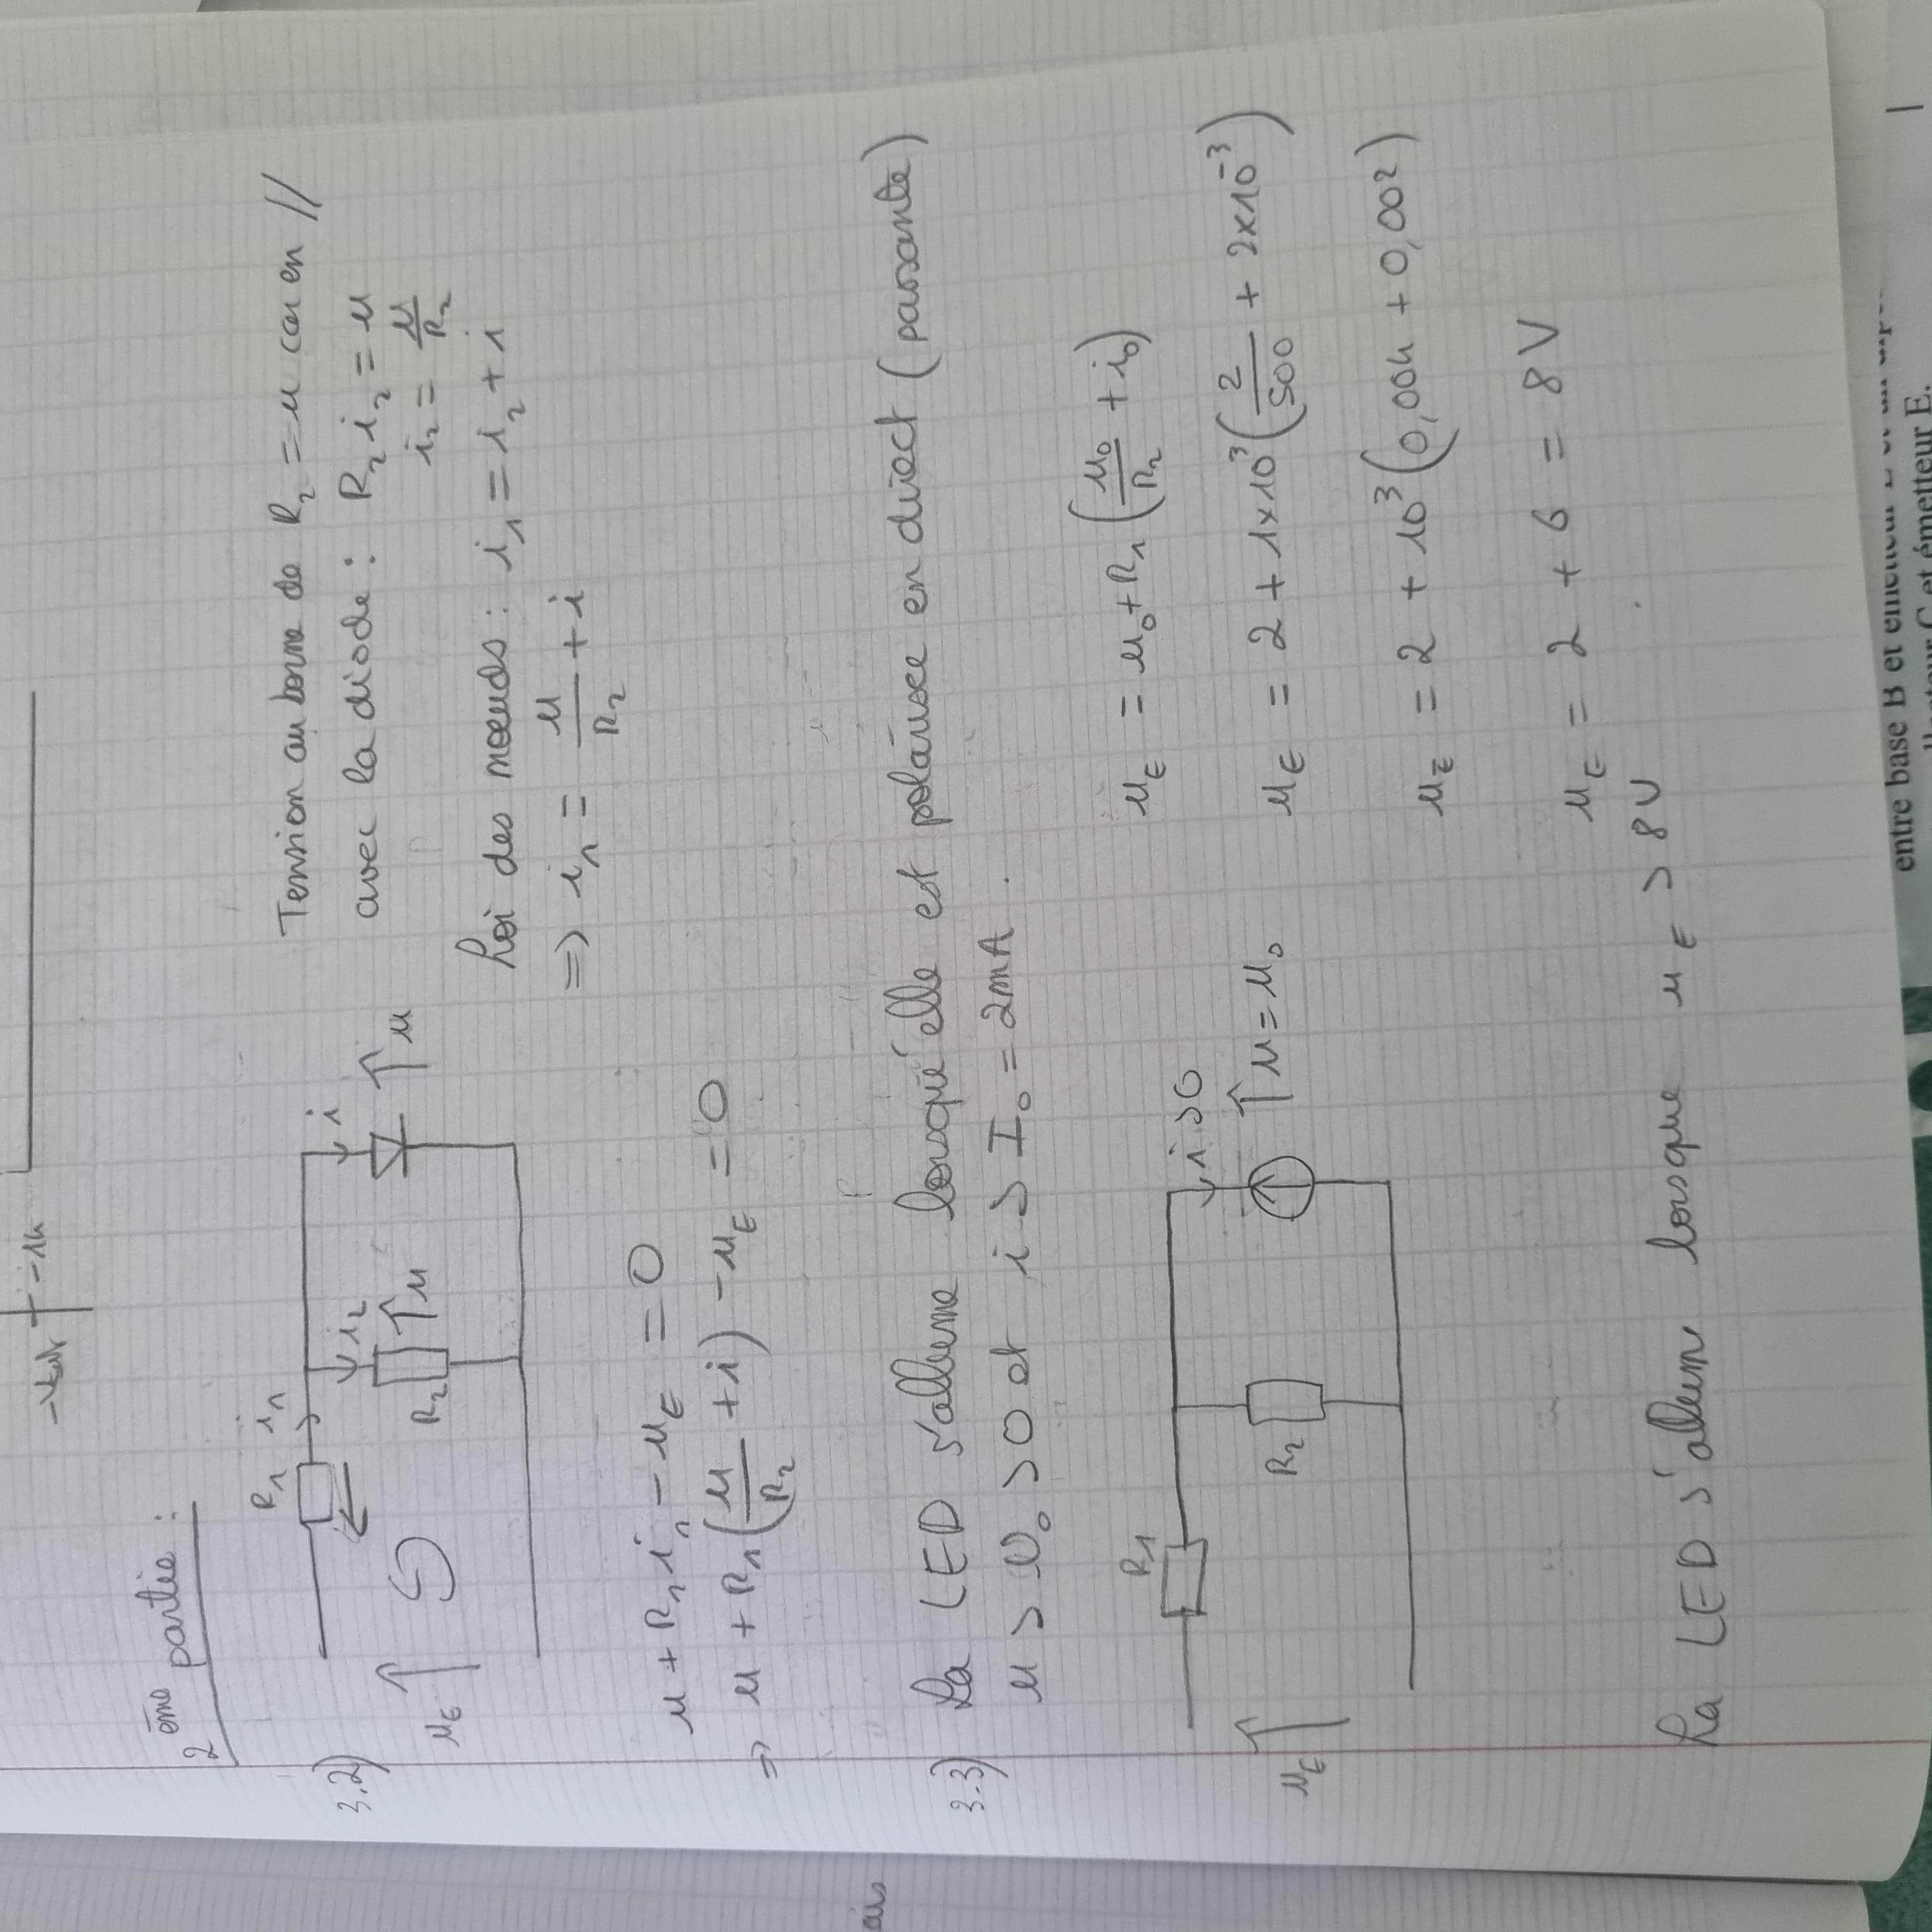 -Vsat -14
2ème partie :
3.2)
R₁ i₁ i₂ i
u_E R₂ u u
Tension au borne de R₂ = u car en //
avec la diode : R₂ i₂ = u
i₂ = u/R₂
Loi des noeuds : i₁ = i₂ + i
=> i₁ = u/R₂ + i
u + R₁ i₁ - u_E = 0
=> u + R₁ (u/R₂ + i) - u_E = 0
3.3) La LED s'allume lorsqu'elle est polarisée en direct (passante)
u > U₀ > 0 et i > I₀ = 2mA.
R₁ i > 0
u_E R₂ u = u₀
u_E = u₀ + R₁ (u₀/R₂ + i₀)
u_E = 2 + 1×10³ (2/500 + 2×10⁻³)
u_E = 2 + 10³ (0,004 + 0,002)
u_E = 2 + 6 = 8V
La LED s'allum lorsque u_E > 8V
ais
entre base B et émetteur E et un
C et émetteur E.